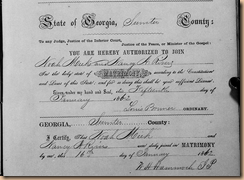 State of Georgia, Sumter County:
To any Judge, Justice of the Inferior Court,
Justice of the Peace, or Minister of the Gospel:
YOU ARE HEREBY AUTHORIZED TO JOIN
Noah Monk and Nancy A. Rivers
in the holy state of MATRIMONY according to the Constitution
and Laws of this State and for so doing this shall be your sufficient License.
Given under my hand and Seal, this Fifteenth day of
January 1862
ORDINARY.
GEORGIA, Sumter County:
I Certify, That Noah Monk and
Nancy A. Rivers were joined in MATRIMONY
by me, this 16th day of January 1862